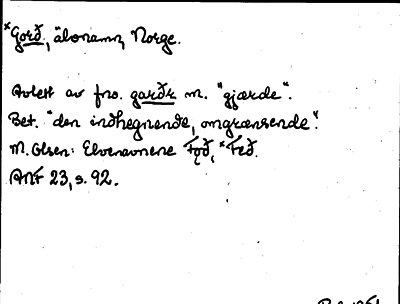 *Gorð, älvnamn, Norge.
Avlett av fno. garðr m. "gjærde".
Bet. "den indhegnende, omgrænsende".
M. Olsen: Elvenavnene Fǫð, *Feð.
ANF 23, s. 92.